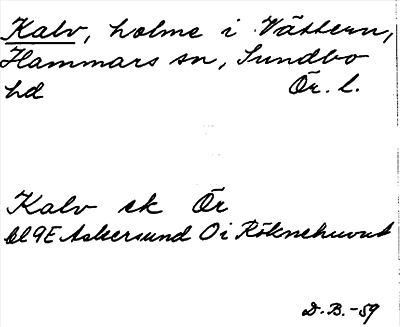 Kalv, holme i Vättern,
Hammars sn, Sundbo
hd Ör. l.
Kalv ek Ör
bl 9E Askersund O i Röknehuvud
D. B. -59